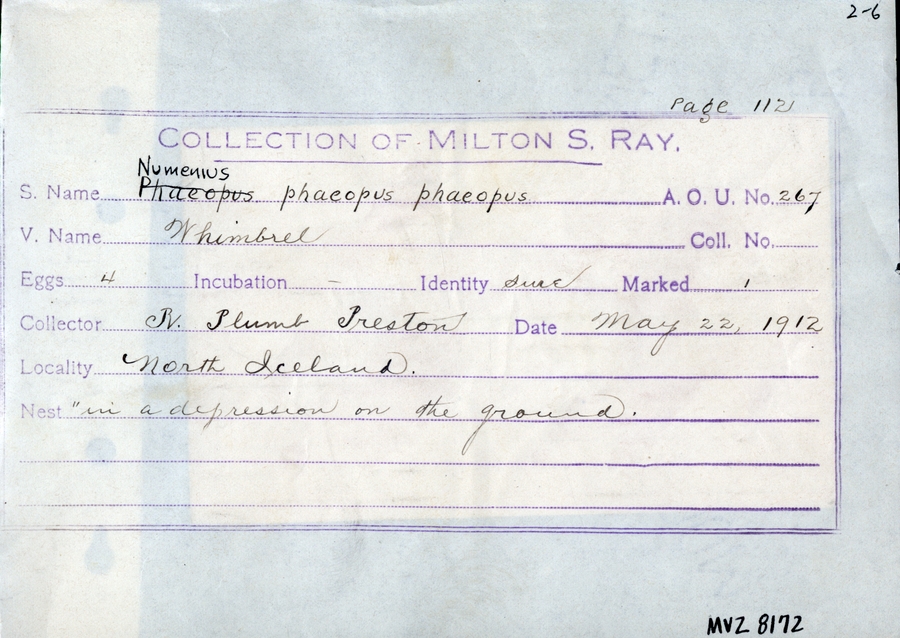 2-6
Page 1121
COLLECTION OF MILTON S. RAY.
Numenius
S. Name Phaeopus phaeopus phaeopus A. O. U. No. 267
V. Name Whimbrel Coll. No.
Eggs 4 Incubation – Identity sure Marked 1
Collector R. Plumb Preston Date May 22, 1912
Locality North Iceland.
Nest "in a depression on the ground.
MVZ 8172